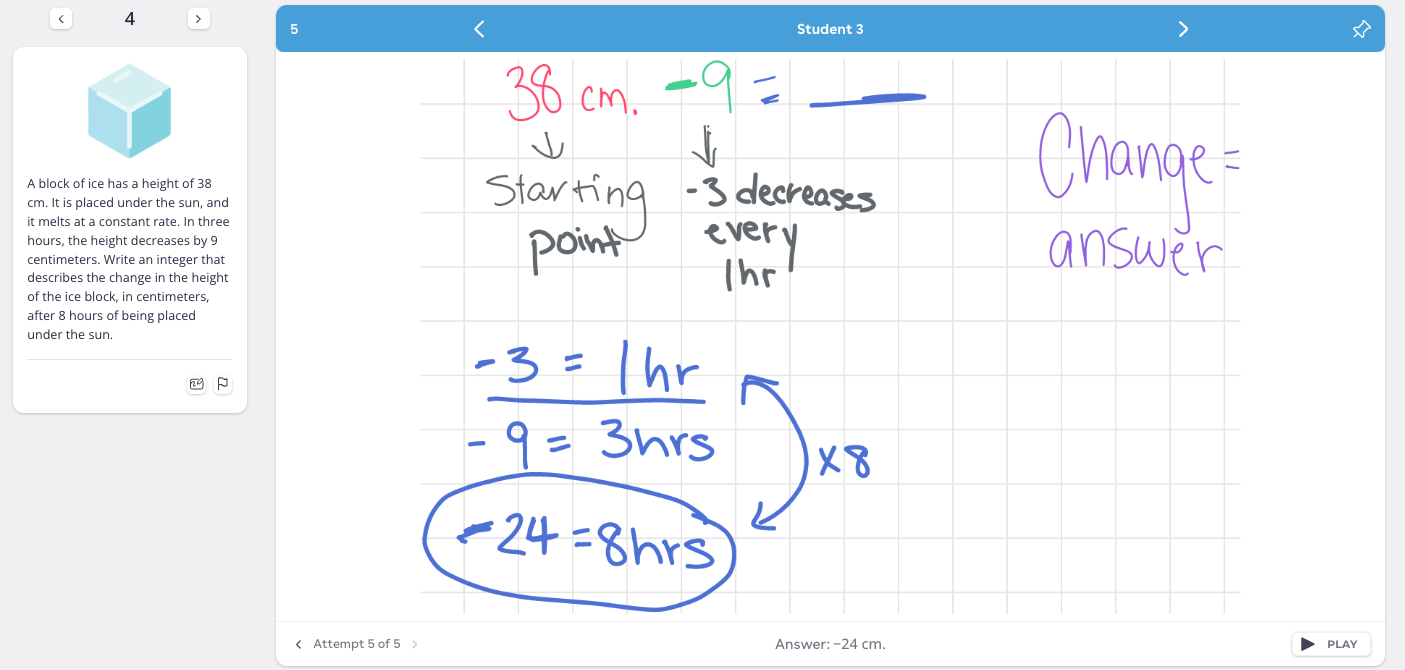 4
A block of ice has a height of 38
cm. It is placed under the sun, and
it melts at a constant rate. In three
hours, the height decreases by 9
centimeters. Write an integer that
describes the change in the height
of the ice block, in centimeters,
after 8 hours of being placed
under the sun.
5
Student 3
38 cm. -9 =
Starting
point
-3 decreases
every
1hr
Change =
answer
-3 = 1hr
-9 = 3hrs
-24 = 8hrs
x8
Attempt 5 of 5
Answer: −24 cm.
PLAY